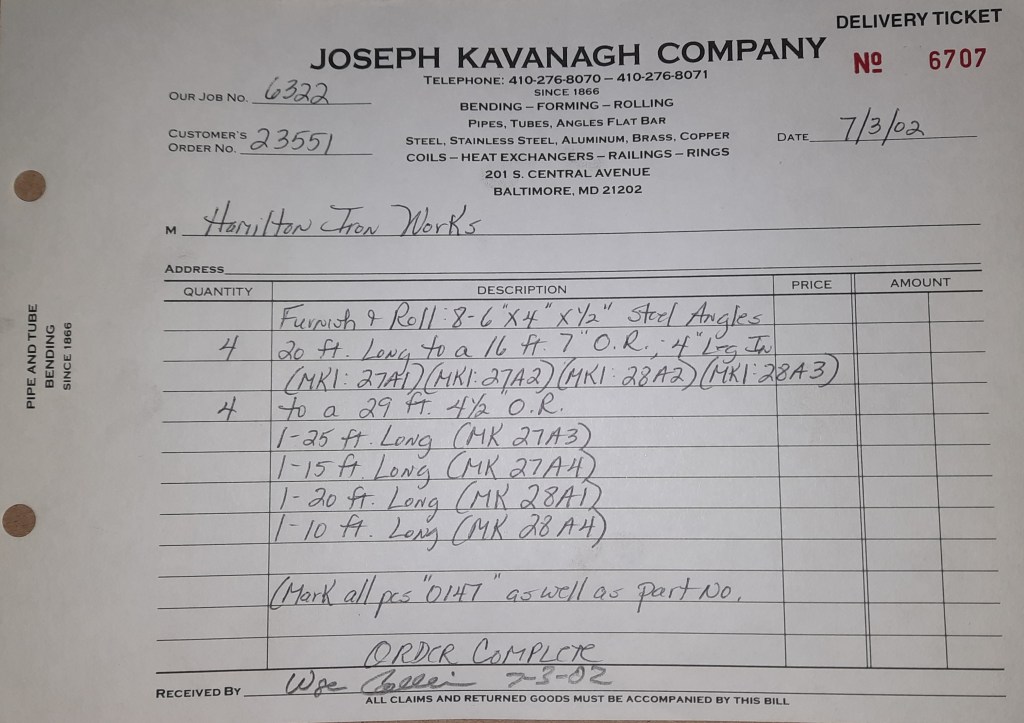 DELIVERY TICKET
JOSEPH KAVANAGH COMPANY
Nº 6707
TELEPHONE: 410-276-8070 – 410-276-8071
SINCE 1866
BENDING – FORMING – ROLLING
PIPES, TUBES, ANGLES FLAT BAR
STEEL, STAINLESS STEEL, ALUMINUM, BRASS, COPPER
COILS – HEAT EXCHANGERS – RAILINGS – RINGS
201 S. CENTRAL AVENUE
BALTIMORE, MD 21202
OUR JOB NO. 6322
CUSTOMER'S ORDER NO. 23551
DATE 7/3/02
M Hamilton Iron Works
ADDRESS
QUANTITY DESCRIPTION PRICE AMOUNT
Furnish & Roll: 8-6"X4"X1/2" Steel Angles
4 20 ft. Long to a 16 ft. 7" O.R.; 4" Leg In
(MK1: 27A1) (MK1: 27A2) (MK1: 28A2) (MK1: 28A3)
4 to a 29 ft. 4 1/2" O.R.
1-25 ft. Long (MK 27A3)
1-15 ft. Long (MK 27A4)
1-20 ft. Long (MK 28A1)
1-10 ft. Long (MK 28A4)
(Mark all pcs "0147" as well as part No.
ORDER COMPLETE
RECEIVED BY 7-3-02
ALL CLAIMS AND RETURNED GOODS MUST BE ACCOMPANIED BY THIS BILL
PIPE AND TUBE
BENDING
SINCE 1866